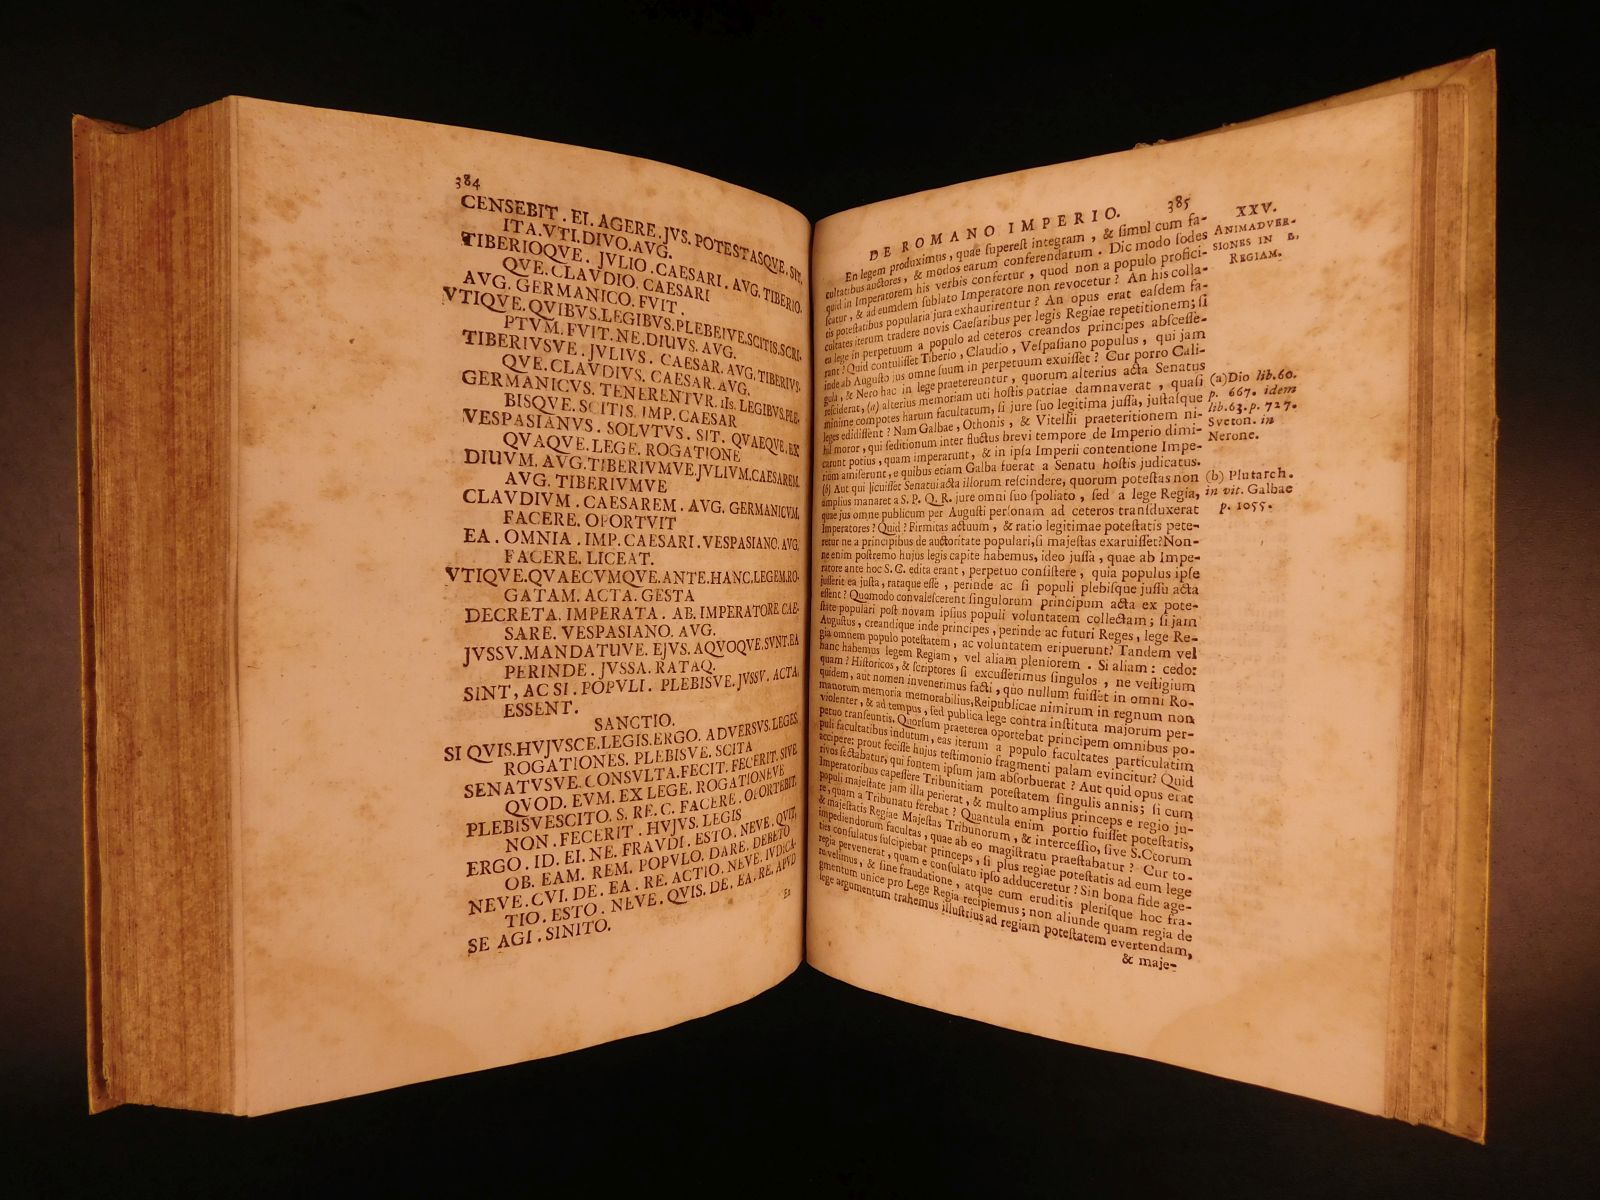 384
CENSEBIT . EI. AGERE. JVS. POTESTASQVE. SIT.
ITA. VTI. DIVO. AVG.
TIBERIOQVE. JVLIO. CAESARI. AVG. TIBERIO.
QVE. CLAVDIO. CAESARI
AVG. GERMANICO. FVIT.
VTIQVE. QVIBVS. LEGIBVS. PLEBEIVE. SCITIS. SCRI-
PTVM. FVIT. NE. DIUVS. AVG.
TIBERIVSVE. JVLIVS. CAESAR. AVG. TIBERIVS-
QVE. CLAVDIVS. CAESAR. AVG.
GERMANICVS. TENERENTVR. IIS. LEGIBVS. PLE-
BISQVE. SCITIS. IMP. CAESAR
VESPASIANVS. SOLVTVS. SIT. QVAEQVE. EX
QVAQVE. LEGE. ROGATIONE
DIUVM. AVG. TIBERIVMVE. JVLIVM. CAESAREM.
AVG. TIBERIVMVE
CLAVDIVM. CAESAREM. AVG. GERMANICVM.
FACERE. OPORTVIT
EA. OMNIA. IMP. CAESARI. VESPASIANO. AVG.
FACERE. LICEAT.
VTIQVE. QVAECVMQVE. ANTE. HANC. LEGEM. RO-
GATAM. ACTA. GESTA
DECRETA. IMPERATA. AB. IMPERATORE. CAE-
SARE. VESPASIANO. AVG.
JVSSV. MANDATUVE. EJVS. AQVOQVE. SVNT. EA
PERINDE. JVSSA. RATAQ.
SINT, AC SI. POPVLI. PLEBISVE. JVSSV. ACTA.
ESSENT.
SANCTIO.
SI QVIS. HVJVSCE. LEGIS. ERGO. ADVERSVS. LEGES.
ROGATIONES. PLEBISVE. SCITA
SENATVSVE. CONSVLTA. FECIT. FECERIT. SIVE
QVOD. EVM. EX LEGE. ROGATIONEVE
PLEBISVESCITO. S. RE. C. FACERE. OPORTEBIT.
NON. FECERIT. HVJVS. LEGIS
ERGO. ID. EI. NE. FRAVDI. ESTO. NEVE. QVIT,
OB. EAM. REM. POPVLO. DARE. DEBETO
NEVE. CVI. DE. EA. RE. ACTIO. NEVE. IVDICA-
TIO. ESTO. NEVE. QVIS. DE. EA. RE. APVD
SE AGI. SINITO.
En
DE ROMANO IMPERIO. 385
En legem produximus, quae superest integram, & simul cum fa-
cultatibus auctores, & modos earum conferendarum. Dic modo sodes
quid in Imperatorem his verbis confertur, quod non a populo profici-
scatur, & ad eumdem sublato Imperatore non revocetur? An his colla-
tis potestatibus popularia jura exhaurirentur? An opus erat easdem fa-
cultates iterum tradere novis Caesaribus per legis Regiae repetitionem; si
ea lege in perpetuum a populo ad ceteros creandos principes abscesse-
rant? Quid contulisset Tiberio, Claudio, Vespasiano populus, qui jam
inde ab Augusto jus omne suum in perpetuum exuisset? Cur porro Cali-
gula, & Nero hac in lege praetereuntur, quorum alterius acta Senatus
resciderat, (a) alterius memoriam uti hostis patriae damnaverat, quasi
minime compotes harum facultatum, si jure suo legitima jussa, justasque
leges edidissent? Nam Galbae, Othonis, & Vitellii praeteritionem ni-
hil moror, qui seditionum inter fluctus brevi tempore de Imperio dimi-
carunt potius, quam imperarunt, & in ipsa Imperii contentione Impe-
rium amiserunt, e quibus etiam Galba fuerat a Senatu hostis judicatus.
(b) Aut qui licuisset Senatui acta illorum rescindere, quorum potestas non
amplius manaret a S. P. Q. R. jure omni suo spoliato, sed a lege Regia,
quae jus omne publicum per Augusti personam ad ceteros transduxerat
Imperatores? Quid? Firmitas actuum, & ratio legitimae potestatis pete-
retur ne a principibus de auctoritate populari, si majestas exaruisset? Non-
ne enim postremo hujus legis capite habemus, ideo jussa, quae ab Impe-
ratore ante hoc S. C. edita erant, perpetuo consistere, quia populus ipse
jusserit ea justa, rataque esse, perinde ac si populi plebisque jussu acta
essent? Quomodo convalescerent singulorum principum acta ex pote-
state populari post novam ipsius populi voluntatem collectam; si jam
Augustus, creandique inde principes, perinde ac futuri Reges, lege Re-
gia omnem populo potestatem, ac voluntatem eripuerunt? Tandem vel
hanc habemus legem Regiam, vel aliam pleniorem. Si aliam: cedo:
quam? Historicos, & scriptores si excusserimus singulos, ne vestigium
quidem, aut nomen invenerimus facti, quo nullum fuisset in omni Ro-
manorum memoria memorabilius, Reipublicae nimirum in regnum non
violenter, & ad tempus, sed publica lege contra instituta majorum per-
petuo transeuntis. Quorsum praeterea oportebat principem omnibus po-
puli facultatibus indutum, eas iterum a populo facultates particulatim
accipere; prout fecisse hujus testimonio fragmenti palam evincitur? Quid
rivos sectabatur, qui fontem ipsum jam absorbuerat? Aut quid opus erat
Imperatoribus capessere Tribunitiam potestatem singulis annis; si cum
populi majestate jam illa perierat, & multo amplius princeps e regio ju-
re, quam a Tribunatu ferebat? Quantula enim portio fuisset potestatis,
& majestatis Regiae Majestas Tribunorum, & intercessio, sive S.Ctorum
impediendorum facultas, quae ab eo magistratu praestabatur? Cur to-
ties consulatus suscipiebat princeps, si plus regiae potestatis ad eum lege
regia pervenerat, quam e consulatu ipso adduceretur? Sin bona fide age-
re velimus, & sine fraudatione, atque cum eruditis plerisque hoc fra-
gmentum unice pro Lege Regia recipiemus; non aliunde quam regia de
lege argumentum trahemus illustrius ad regiam potestatem evertendam,
& maje-
XXV.
ANIMADVER-
SIONES IN L.
REGIAM.
(a) Dio lib. 60.
p. 667. idem
lib. 63. p. 727.
Sveton. in
Nerone.
(b) Plutarch.
in vit. Galbae
p. 1055.